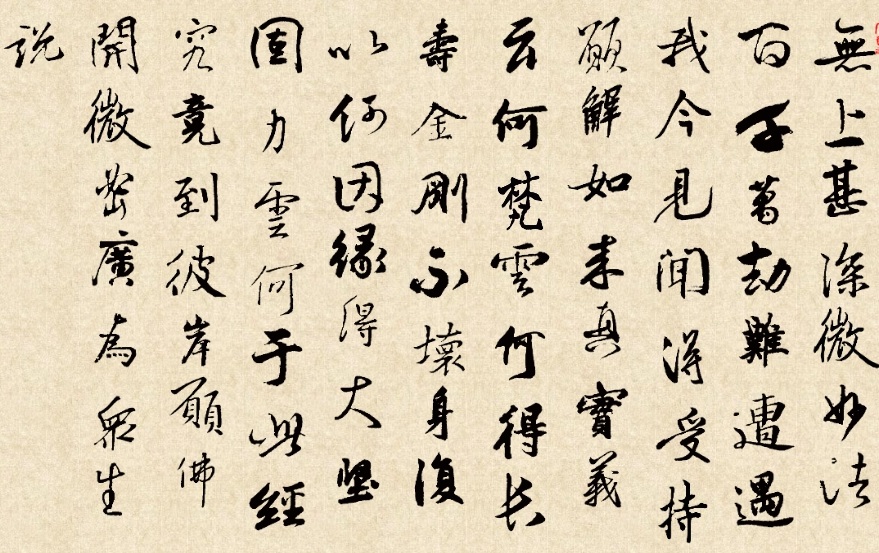 無上甚深微妙法
百千萬劫難遭遇
我今見聞得受持
願解如来真實義
云何梵雲何得长
壽金剛不壞身復
以何因緣得大堅
固力雲何于此經
究竟到彼岸願佛
開微密廣為眾生
説